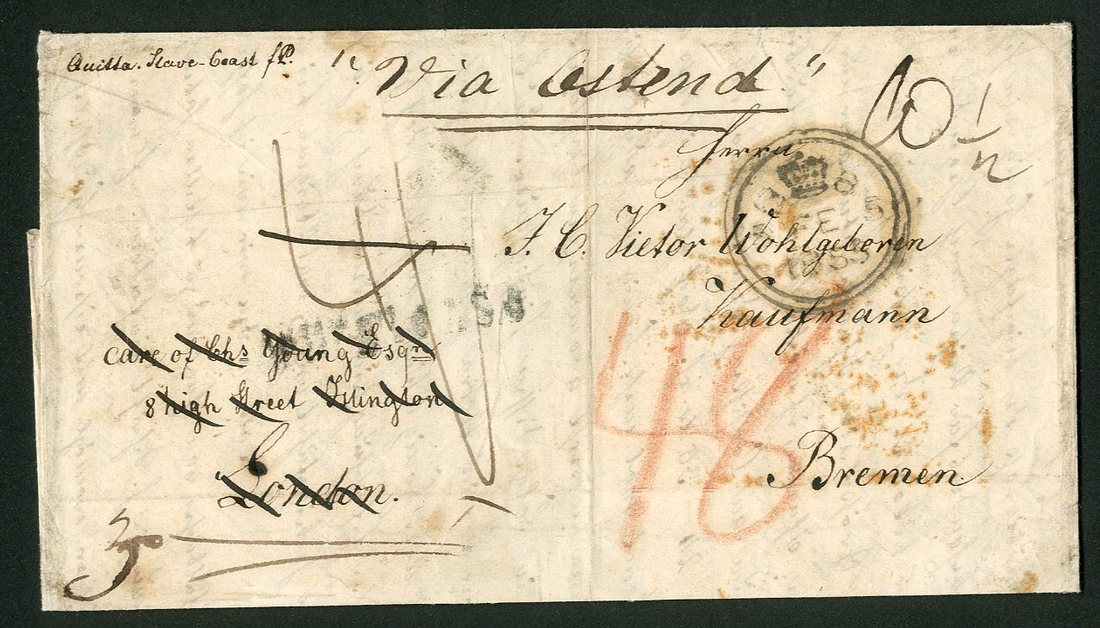 Quitta. Slave-Coast
"Via Ostend"
10 1/2
Herrn
J. C. Vietor Wohlgeboren
Kaufmann
Bremen
care of Chs Young Esqre
8 high Street Islington
London.
48
5